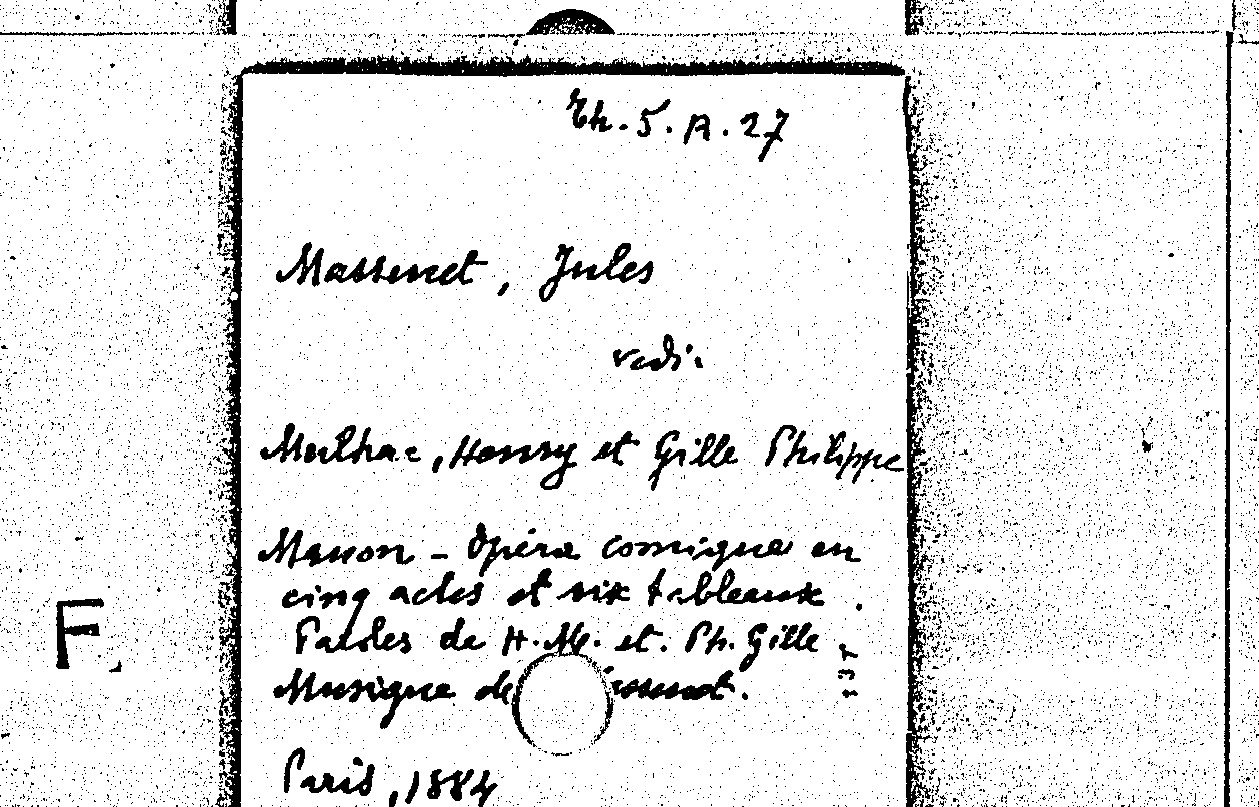 Th. 5. A. 27
Massenet, Jules
vedi:
Meilhac, Henry et Gille Philippe
Manon - Opéra comique en
cinq actes et six tableaux.
Paroles de H. M. et. Ph. Gille
Musique de ssenet.
Paris, 1884
F.